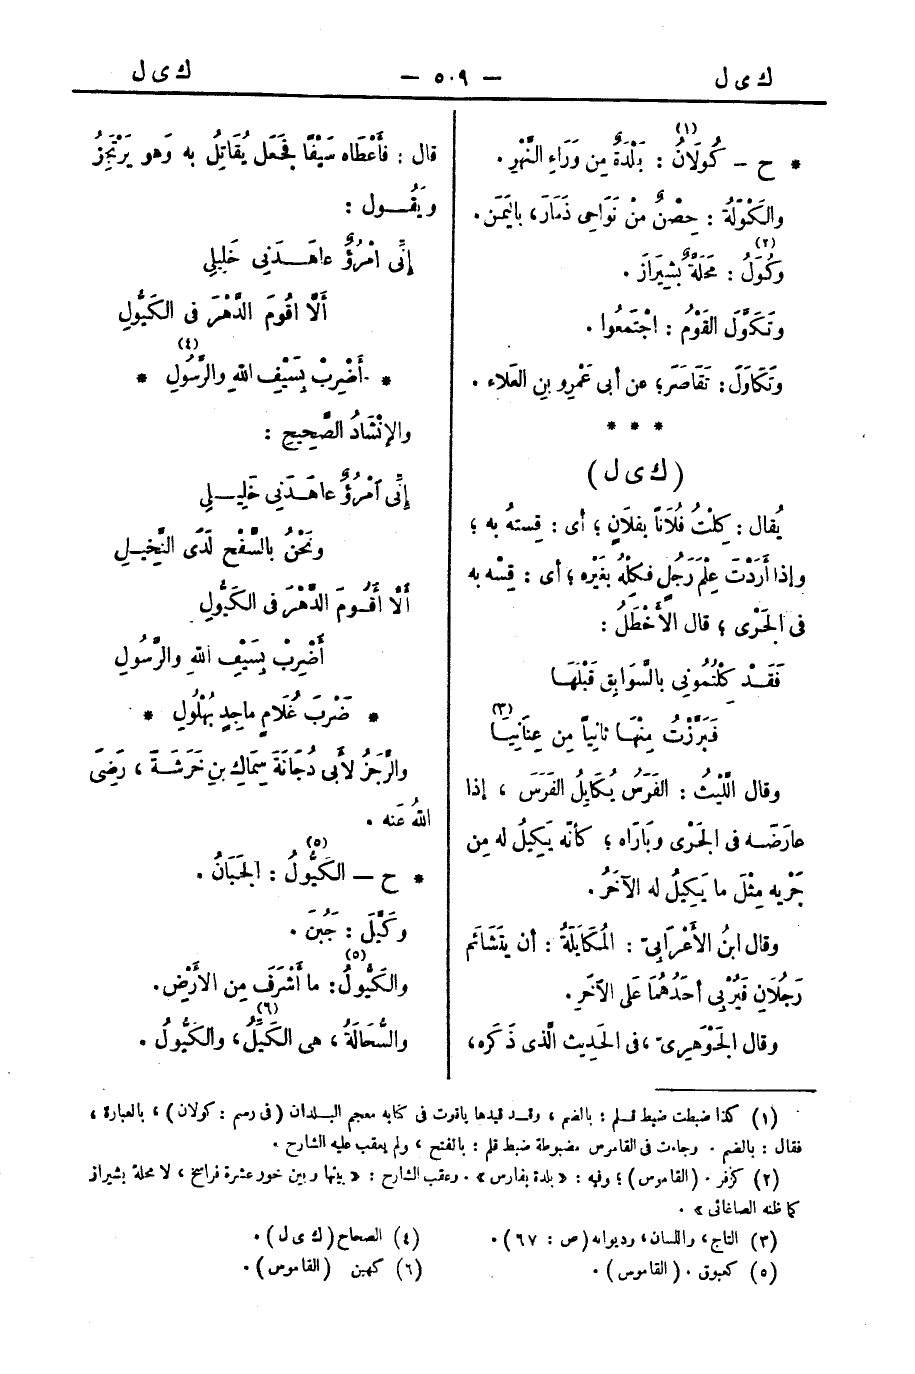 ك ى ل
— ٥٠٩ —
ك ى ل
* ح – كُولَانُ(١) : بَلْدَةٌ مِن وَرَاءِ النَّهْرِ .
والكَوْلَةُ : حِصْنٌ مِنْ نَوَاحِى ذَمَارَ، باليَمَن .
وكُوَلُ(٢) : مَحَلَّةٌ بشِيرَازَ .
وتَكَوَّلَ القَوْمُ : اجْتَمَعُوا .
وتَكَاوَلَ : تَقَاصَرَ؛ عن أبى عَمْرِو بنِ العَلَاء .
* * *
( ك ى ل )
يُقال : كِلْتُ فُلَاناً بفلَانٍ ؛ أى : قِستهُ به ؛
وإذا أَرَدْتَ عِلْمَ رَجُلٍ فكِلْهُ بغَيْره ؛ أى : قِسْه به
فى الجَرْى ؛ قال الأَخْطَلُ :
فَقَـد كِلْتُمُونِى بالسَّوَابِقِ قَبْلَهَـا
فَبَرَّزْتُ مِنْهَـا ثانِياً مِن عِنَانِيَـا(٣)
وقال اللَّيْثُ : الفَرَسُ يُكَايِلُ الفَرَسَ ، إذا
عارَضَـه فى الجَرْى وبَارَاه ؛ كأنّه يَكِيلُ له مِن
جَرْيِه مِثْلَ ما يَكِيلُ له الآخَرُ .
وقال ابنُ الأَعْرَابِىّ : المُكَايَلَةُ : أن يَتَشَاتَم
رَجُلَانِ فَيُرْبِى أحَدُهُمَا عَلَى الآخَرِ .
وقال الجَوْهَرِىّ ، فى الحَدِيث الَّذى ذَكَره،
قال : فَأَعْطَاه سَيْفًا فجَعَل يُقَاتِلُ به وهو يَرْتَجِزُ
ويَقُـــول :
إنِّى امْرُؤٌ عاهَـــدَنِى خَلِيلِى
أَلَّا اقُومَ الدَّهْرَ فى الكَيُّولِ
* أَضْرِبْ بسَيْفِ اللهِ والرَّسُولِ(٤) *
والإنْشَادُ الصَّحِيح :
إنِّى آمْرُؤٌ عاهَـدَنِى خَلِيـــلِى
ونَحْنُ بالسَّفْحِ لَدَى النَّخِيـلِ
أَلَّا أَقُـومَ الدَّهْرَ فى الكَيُّولِ
أَضْرِبْ بسَيْفِ اللهِ والرَّسُولِ
* ضَرْبَ غُلَامٍ ماجِدٍ بُهْلُولِ *
والرَّجَزُ لأَبى دُجَانَةَ سِمَاكِ بنِ خَرَشَـةَ ، رَضِىَ
اللهُ عَنه .
* ح – الكَيُّولُ(٥) : الجَبَانُ .
وكَيَّلَ : جَبُنَ .
والكَيُّولُ(٥): ما أَشْرَفَ مِن الأَرْضِ.
والسُّحَالَةُ ، هى الكَيِّلُ(٦)، والكَيُّولُ .
(١) كذا ضبطت ضبط قـلم : بالضم ، وقـد قيدها ياقوت فى كتابه معجم البـلدان ( فى رسم : كولان ) ، بالعبارة ،
فقال : بالضم . وجاءت فى القاموس مضبوطة ضبط قلم : بالفتح ، ولم يعقب عليه الشارح .
(٢) كزفر . (القاموس) ؛ وفيه : « بلدة بفارس » . وعقب الشارح : « بينها وبين خور عشرة فراسخ ، لا محلة بشيراز
كما ظنه الصاغانى » .
(٣) التاج، واللسان، وديوانه (ص : ٦٧) .
(٤) الصحاح (ك ى ل) .
(٥) كعيوق . (القاموس) .
(٦) كهين (القاموس) .